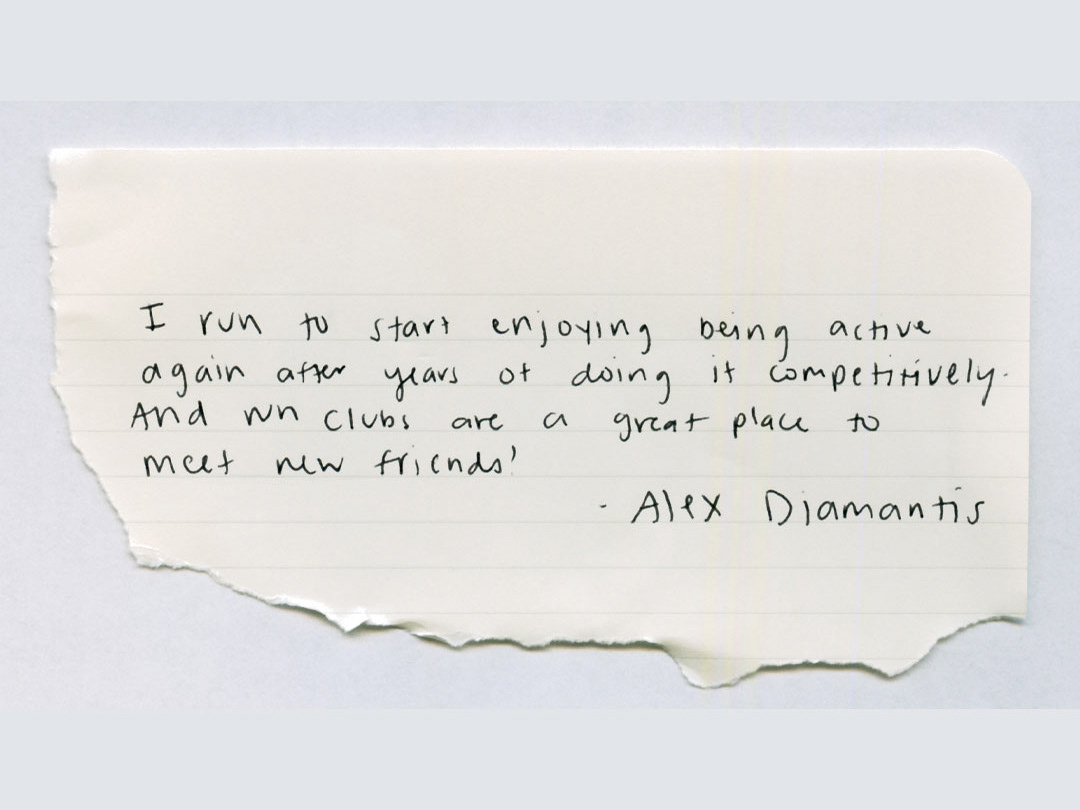 I run to start enjoying being active
again after years of doing it competitively.
And run clubs are a great place to
meet new friends!
- Alex Diamantis